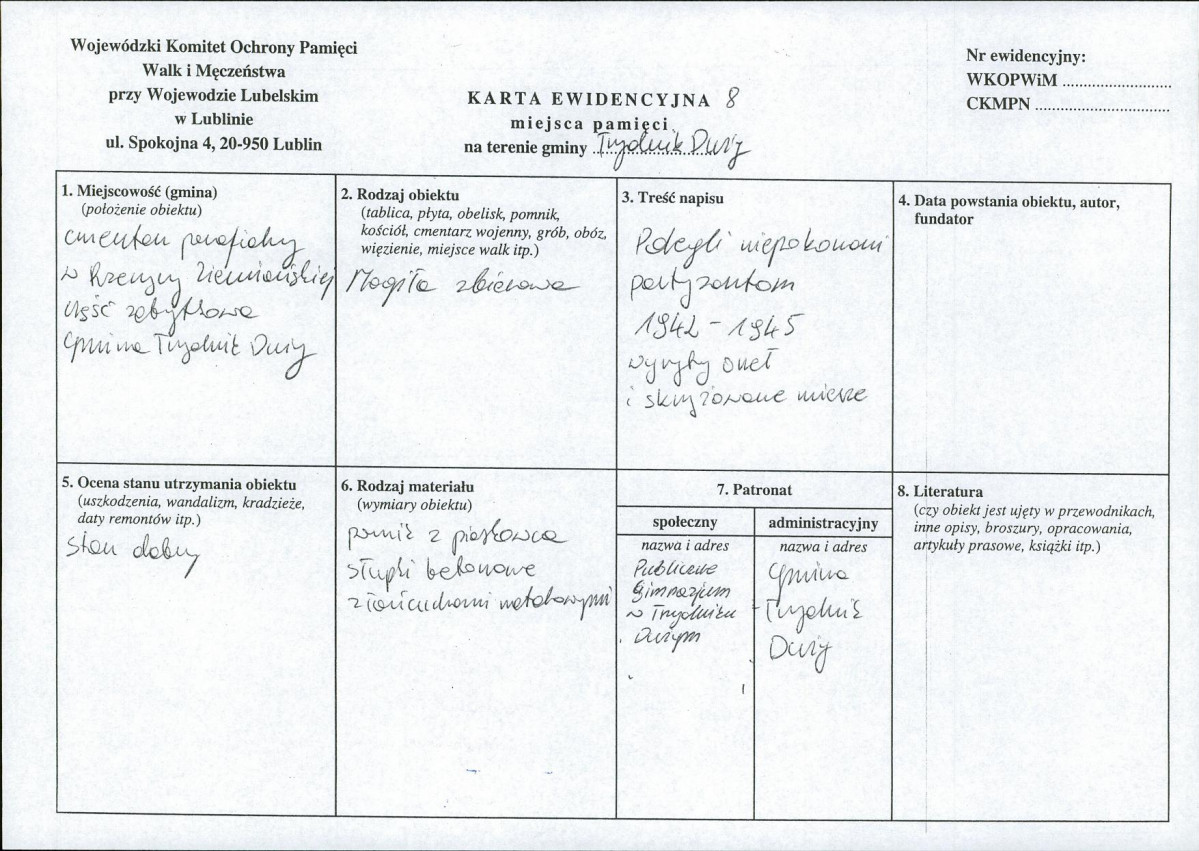 Wojewódzki Komitet Ochrony Pamięci
Walk i Męczeństwa
przy Wojewodzie Lubelskim
w Lublinie
ul. Spokojna 4, 20-950 Lublin
Nr ewidencyjny:
WKOPWiM ........................
CKMPN ..............................
KARTA EWIDENCYJNA 8
miejsca pamięci
na terenie gminy Trzydnik Duży
1. Miejscowość (gmina)
(położenie obiektu)
cmentarz parafialny
w Rzeczycy Ziemiańskiej
część zabytkowa
Gmina Trzydnik Duży
2. Rodzaj obiektu
(tablica, płyta, obelisk, pomnik,
kościół, cmentarz wojenny, grób, obóz,
więzienie, miejsce walk itp.)
Mogiła zbiorowa
3. Treść napisu
Polegli niepokonani
partyzantom
1942 - 1945
wyryty orzeł
i skrzyżowane miecze
4. Data powstania obiektu, autor,
fundator
5. Ocena stanu utrzymania obiektu
(uszkodzenia, wandalizm, kradzieże,
daty remontów itp.)
stan dobry
6. Rodzaj materiału
(wymiary obiektu)
pomnik z piaskowca
słupki betonowe
z łańcuchami metalowymi
7. Patronat
społeczny
nazwa i adres
Publiczne
Gimnazjum
w Trzydniku
Dużym
administracyjny
nazwa i adres
Gmina
Trzydnik
Duży
8. Literatura
(czy obiekt jest ujęty w przewodnikach,
inne opisy, broszury, opracowania,
artykuły prasowe, książki itp.)